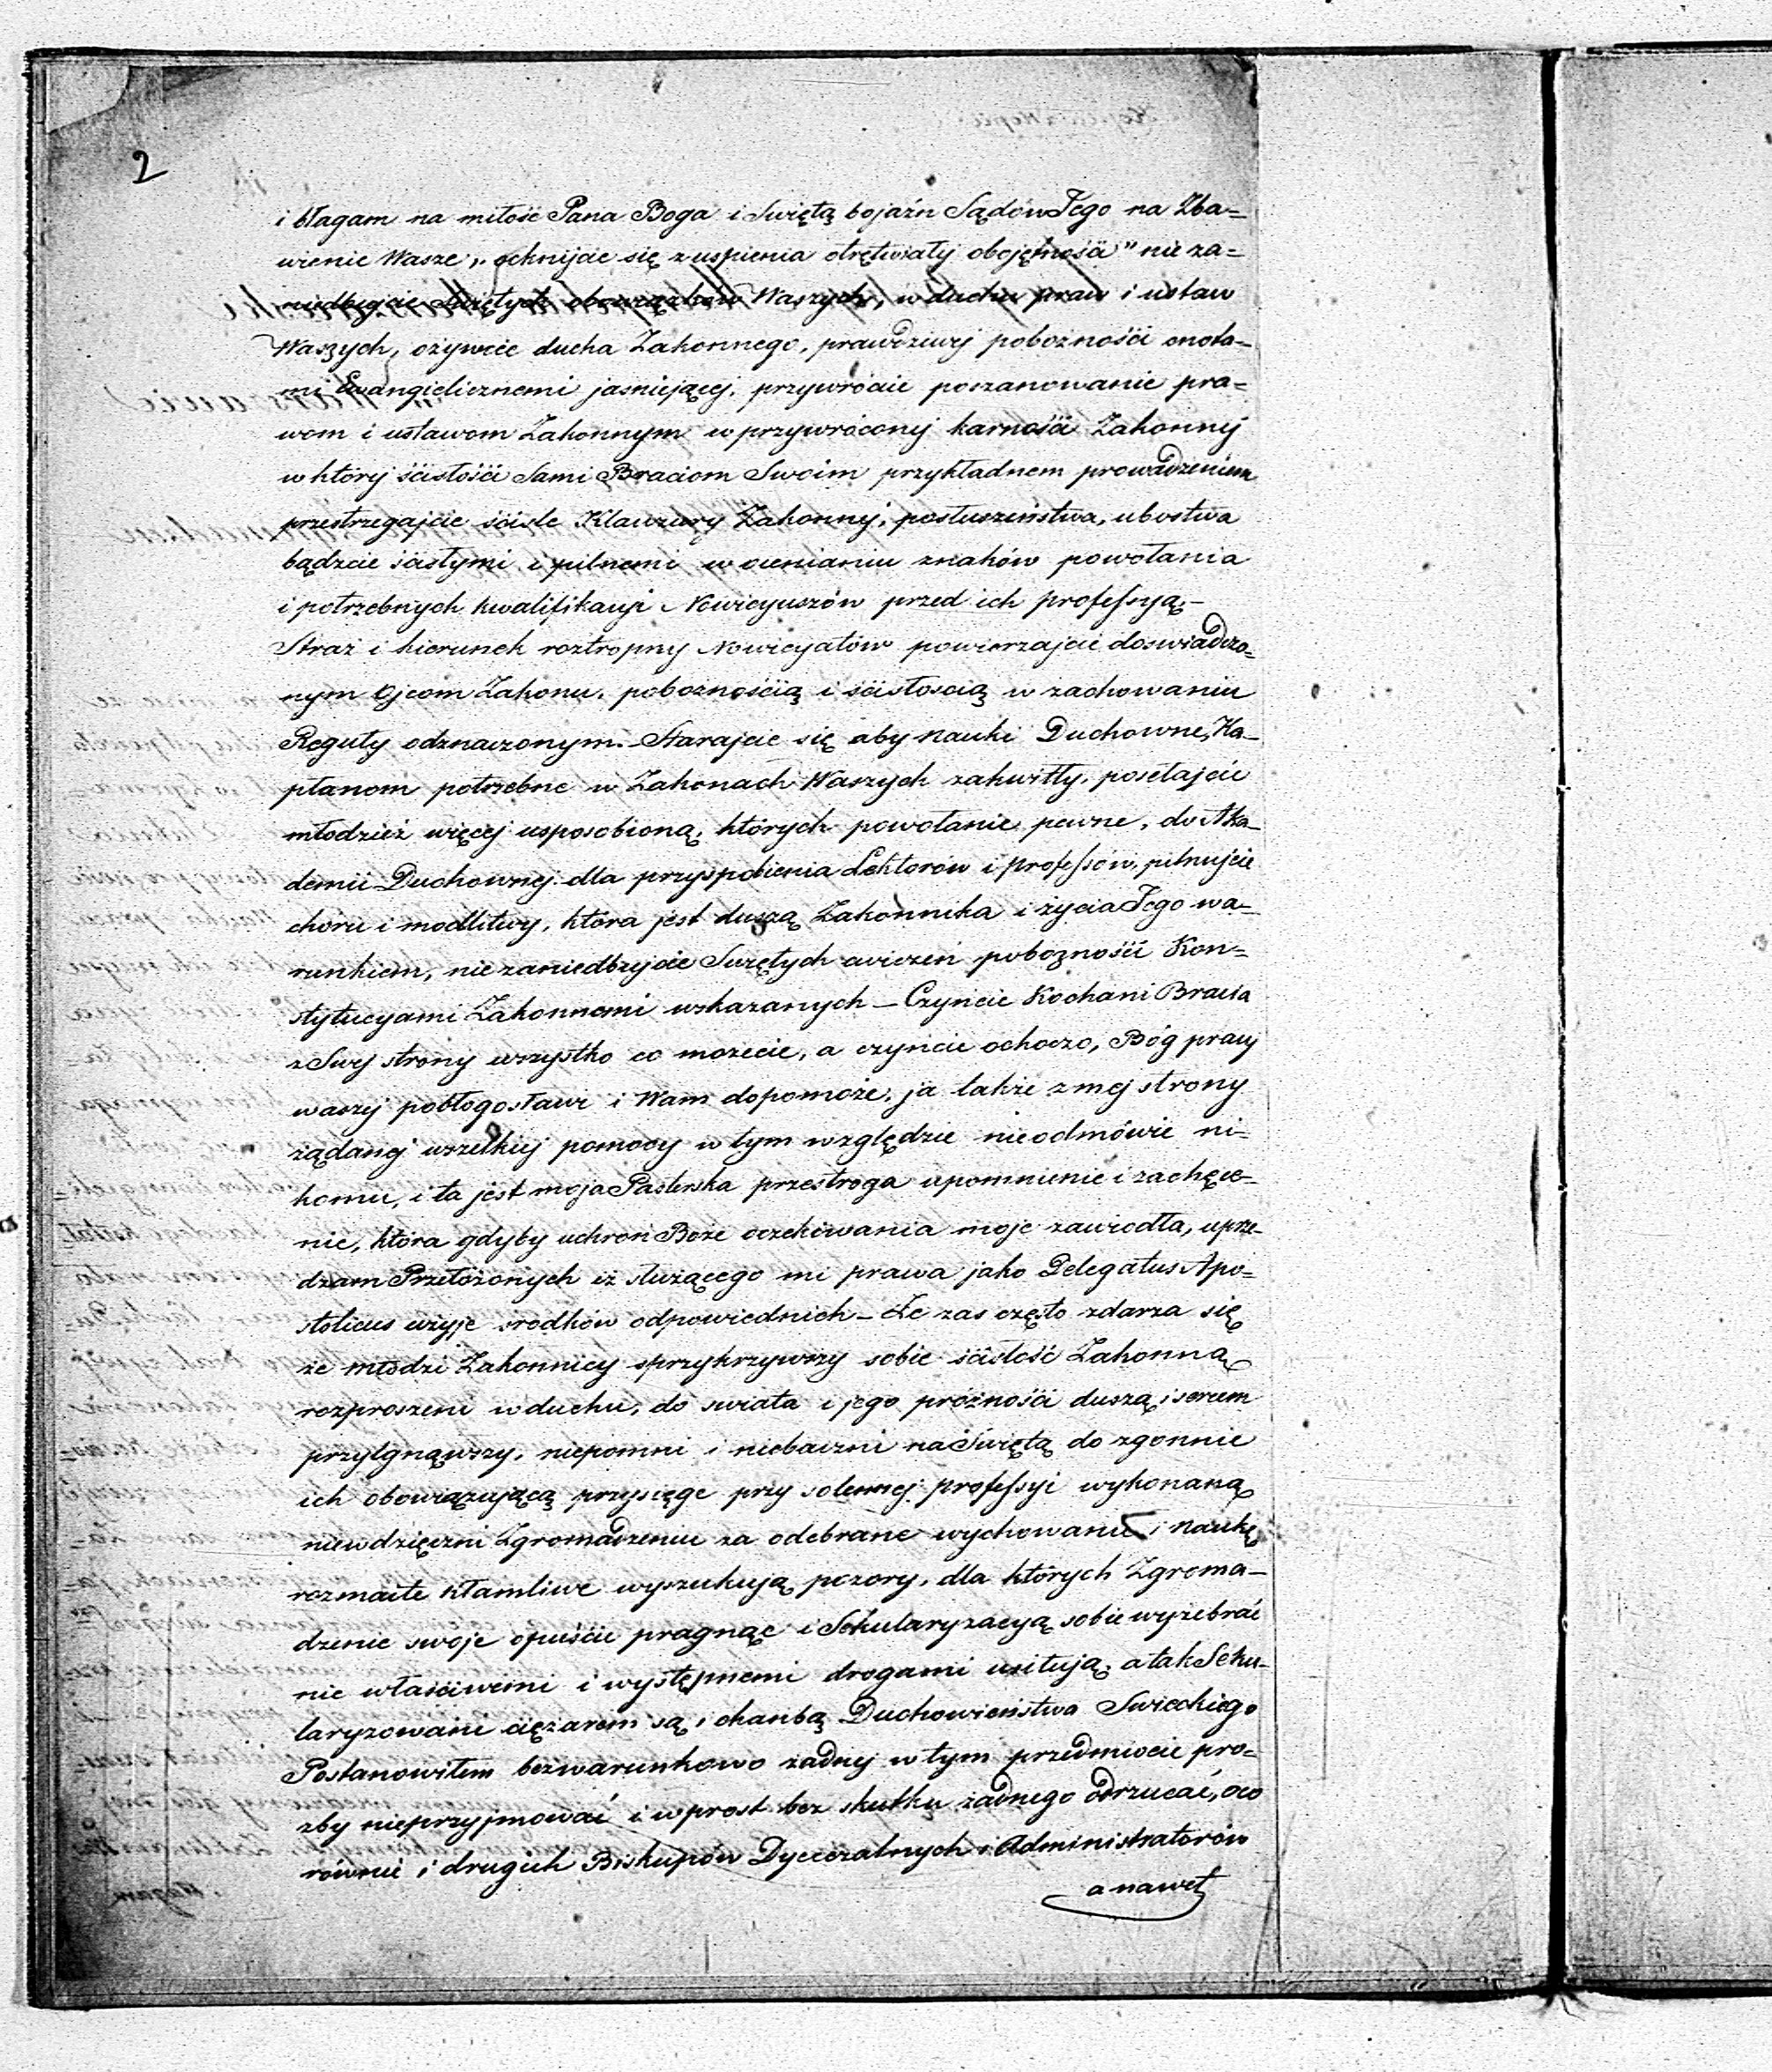 2
i błagam na miłość Pana Boga i Swiętą bojaźn Sądów Jego na Zba=
wienie Wasze „ ocknijcie się z uspienia otrętwiały obojętnośći" nie za=
niedbujcie Swiętych obowiązków Waszych, w duchu praw i ustaw
Waszych, ożywcie ducha Zakonnego, prawdziwej pobożnośći cnota-
mi Ewangielicznemi jasniejącej, przywróćcie poszanowanie pra=
wom i ustawom Zakonnym w przywróconej karnośći Zakonnej
w której śćisłośći Sami Braciom Swoim przykładnem prowadzeniem
przestrzegajcie śćisle Klauzury Zakonnej, posłuszeństwa, ubostwa
bądzcie śćisłymi i pilnemi w ocenianiu znaków powołania
i potrzebnych kwalifikacyi Nowicyuszów przed ich professyą.-
Straż i kierunek roztropny Nowicyatów powierzajcie doswiadczo=
nym Ojcom Zakonu, pobożnośćią i śćisłoscią w zachowaniu
Reguły odznaczonym.- Starajcie się aby nauki Duchowne, Ka-
płanom potrzebne w Zakonach Waszych zakwitły, posełajcie
młodzież więcej usposobioną, których powołanie pewne, do Aka-
demii Duchownej dla przysposobienia Lektorów i professów, pilnujcie
choru i modlitwy, która jest duszą Zakonnika i życia Jego wa-
runkiem, nie zaniedbujcie Swiętych cwiczeń pobożnośći Kon=
stytucyami Zakonnemi wskazanych - Czyńcie Kochani Bracia
z Swej strony wszystko co możecie, a czyńcie ochoczo, Bóg pracy
waszej pobłogosławi i Wam dopomoże, ja także z mej strony
żądanej wszelkiej pomocy w tym względzie nieodmówię ni=
komu, i ta jest moja Pasterska przestroga upomnienie i zachęce-
nie, która gdyby uchroń Boże oczekiwania moje zawiodła, uprze-
dzam Przełożonych iż służącego mi prawa jako Delegatus Apo=
stolicus użyję srodków odpowiednich - Że zas często zdarza się
że młodzi Zakonnicy sprzykrzywszy sobie śćisłość Zakonną
rozproszeni w duchu, do swiata i jego próżnośći duszą i sercem
przylgnąwszy, niepomni i niebaczni na Swiętą do zgonnie
ich obowiązującą przysięgę przy solennej professyi wykonaną
niewdzięczni Zgromadzeniu za odebrane wychowanie i naukę
rozmaite kłamliwe wyszukują pozory, dla których Zgroma-
dzenie swoje opuśćić pragnąc i Sekularyzacyą sobie wyżebrać
nie właściwemi i występnemi drogami usiłują, a tak Seku-
laryzowani ciężarem są i chanbą Duchowieństwa Swieckiego
Postanowiłem bezwarunkowo żadnej w tym przedmiocie pro=
zby nieprzyjmować i wprost bez skutku żadnego odrzucać, oco
równie i drugich Biskupów Dyecezalnych i Administratorów
a nawet